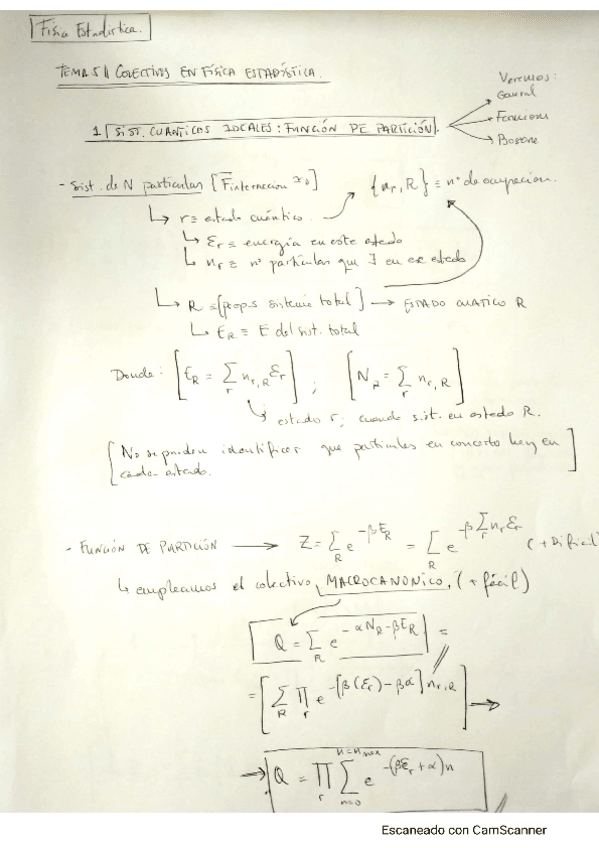 Física Estadística.
TEMA 5 || COLECTIVOS EN FÍSICA ESTADÍSTICA.
Veremos:
General
Fermiones
Bosone
1 | SIST. CUANTICOS IDEALES: FUNCIÓN DE PARTICIÓN.
- Sist. de N particulas [F interaccion ≈ 0]
{n_r, R} ≡ nº de ocupacion.
↳ r ≡ estado cuántico.
↳ ε_r ≡ energía en este estado
↳ n_r ≡ nº particulas que ∃ en ese estado
↳ R ≡ {props sistema total} → ESTADO CUATICO R
↳ E_R ≡ E del sist. total
Donde: [E_R = Σ_r n_{r,R} ε_r] ; [N_R = Σ_r n_{r,R}]
↳ estado r; cuando sist. en estado R.
[No se pueden identificar que particulas en concreto hay en
cada estado.]
- FUNCIÓN DE PARTICIÓN → Z = Σ_R e^{-βE_R} = Σ_R e^{-β Σ_r n_r ε_r} (+ Dificil
↳ empleamos el colectivo MACROCANONICO. (+ fácil)
Q = Σ_R e^{-αN_R - βE_R} =
= [Σ_R Π_r e^{-[β(ε_r) - βα] n_{r,R}}] →
→ Q = Π_r Σ_{n=0}^{n=n_max} e^{-(βε_r + α)n}
Escaneado con CamScanner